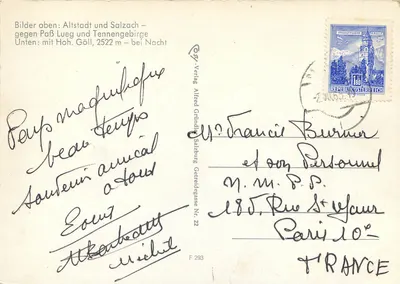 Bilder oben: Altstadt und Salzach –
gegen Paß Lueg und Tennengebirge
Unten: mit Hoh. Göll, 2522 m – bei Nacht
Pays magnifique
beau temps
souvenir amical
a tous
Michel
Cosy-Verlag Alfred Salzburg, Nr. 22
F 283
REPUBLIK ÖSTERREICH
Mr Francis
et son Personnel
N. M. P. P.
185, Rue St Maur
Paris 10e
FRANCE